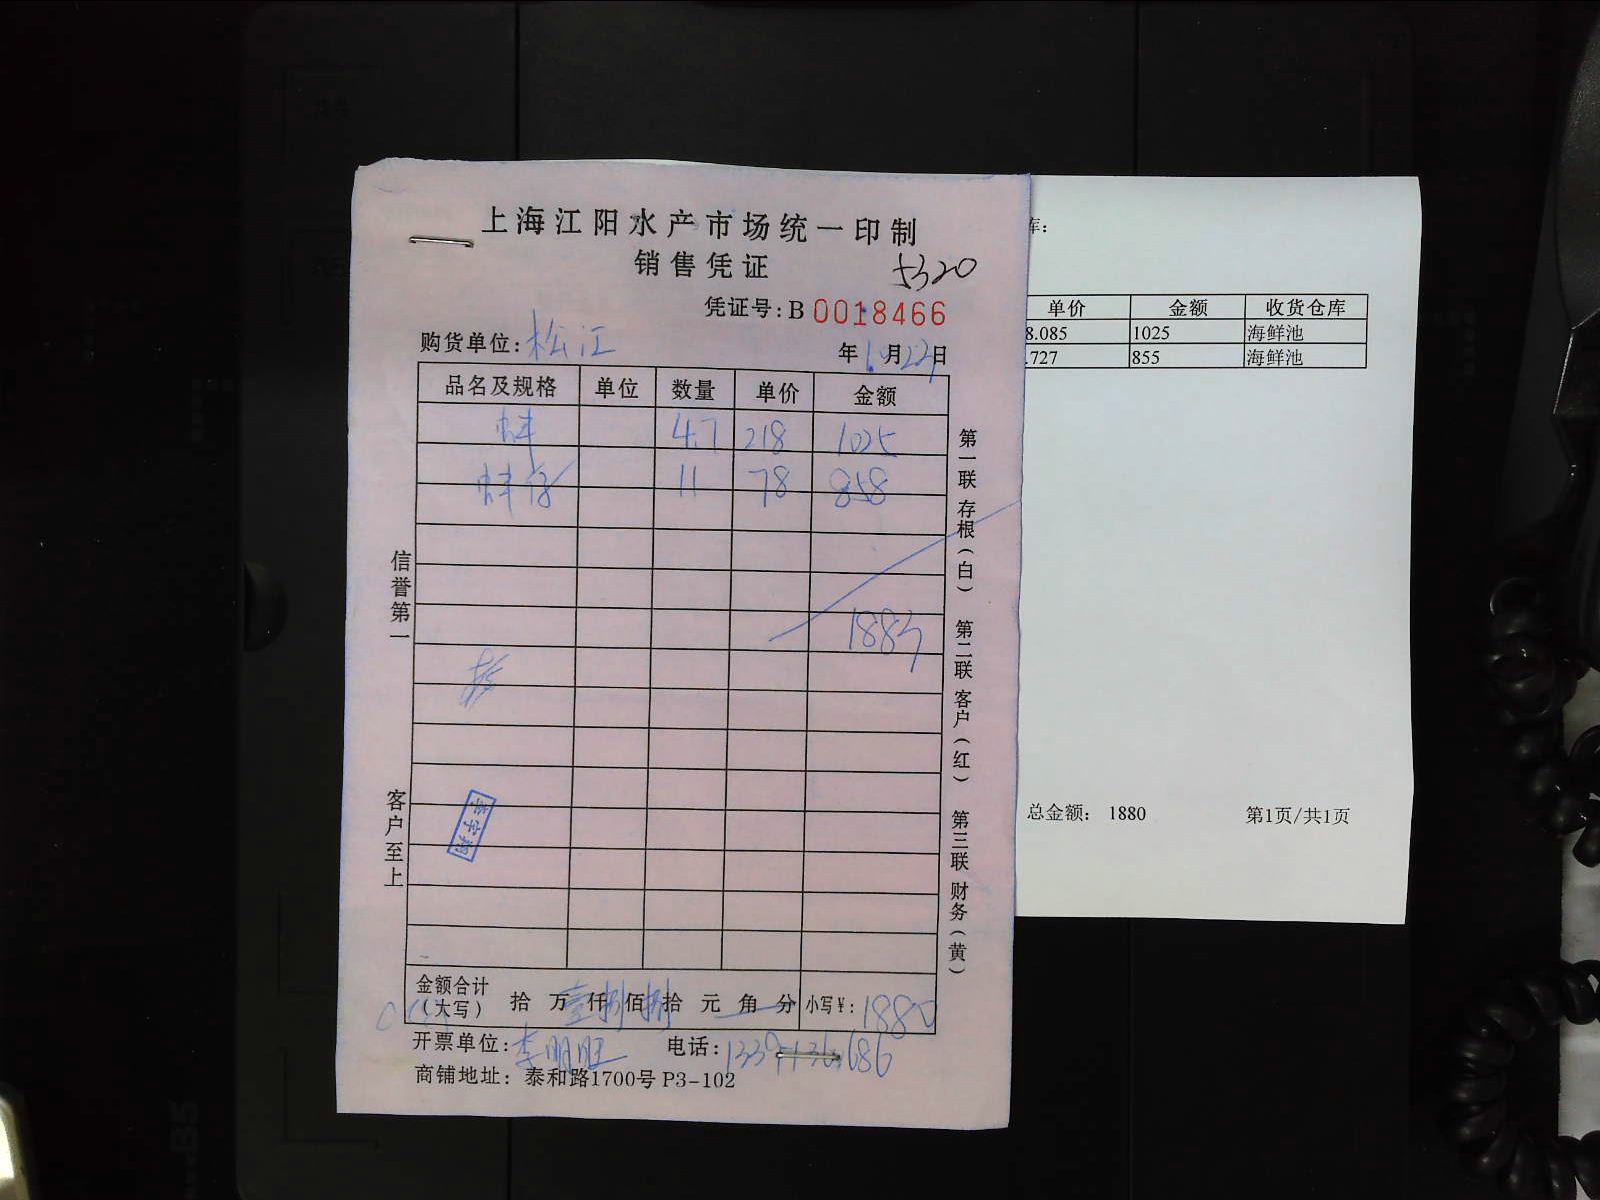 上海江阳水产市场统一印制
销售凭证
5320
凭证号:B 0018466
购货单位:松江
年10月22日
品名及规格 单位 数量 单价 金额
4.7 218 1025
11 78 858
1883
信誉第一
客户至上
第一联 存根(白) 第二联 客户(红) 第三联 财务(黄)
金额合计(大写) 拾 万壹仟捌佰捌拾 元 角 分 小写¥:1880
开票单位:李明旺 电话:
商铺地址:泰和路1700号 P3-102
库:
单价 金额 收货仓库
8.085 1025 海鲜池
.727 855 海鲜池
总金额: 1880 第1页/共1页